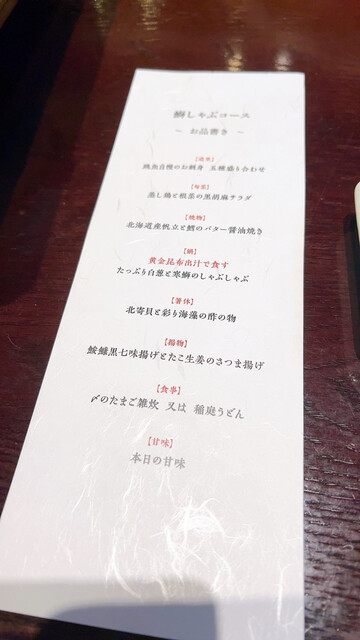 鰤しゃぶコース
～ お品書き ～
【造里】
焼魚自慢のお刺身 五種盛り合わせ
【旬菜】
蒸し鶏と根菜の黒胡麻サラダ
【焼物】
北海道産帆立と鱈のバター醤油焼き
【鍋】
黄金昆布出汁で食す
たっぷり白葱と寒鰤のしゃぶしゃぶ
【箸休】
北寄貝と彩り海藻の酢の物
【揚物】
鮟鱇黒七味揚げとたこ生姜のさつま揚げ
【食事】
〆のたまご雑炊 又は 稲庭うどん
【甘味】
本日の甘味